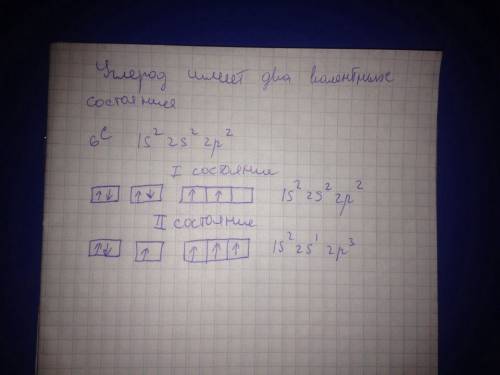 Углерод имеет два валентных
состояния
₆C 1S² 2S² 2p²
I состояние
↑↓ ↑↓ ↑ ↑ 1S² 2S² 2p²
II состояние
↑↓ ↑ ↑ ↑ ↑ 1S² 2S¹ 2p³